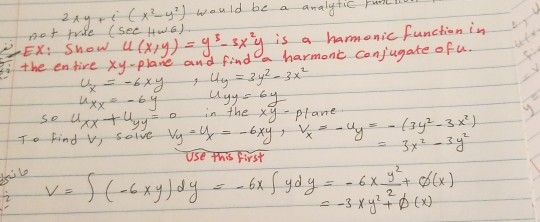 2xy + i (x²-y²) would be a analytic
not true (see HW6)
EX: Show U(x,y) = y³-3x²y is a harmonic function in
the entire xy-plane and find a harmonic conjugate of u.
Ux = -6xy , Uy = 3y²-3x²
Uxx = -6y Uyy = 6y
so Uxx + Uyy = 0 in the xy-plane
To find V, solve Vy = Ux = -6xy, Vx = -Uy = -(3y²-3x²)
= 3x²-3y²
Use this first
V = ∫(-6xy)dy = -6x∫ydy = -6x y²/2 + ϕ(x)
= -3xy² + ϕ(x)